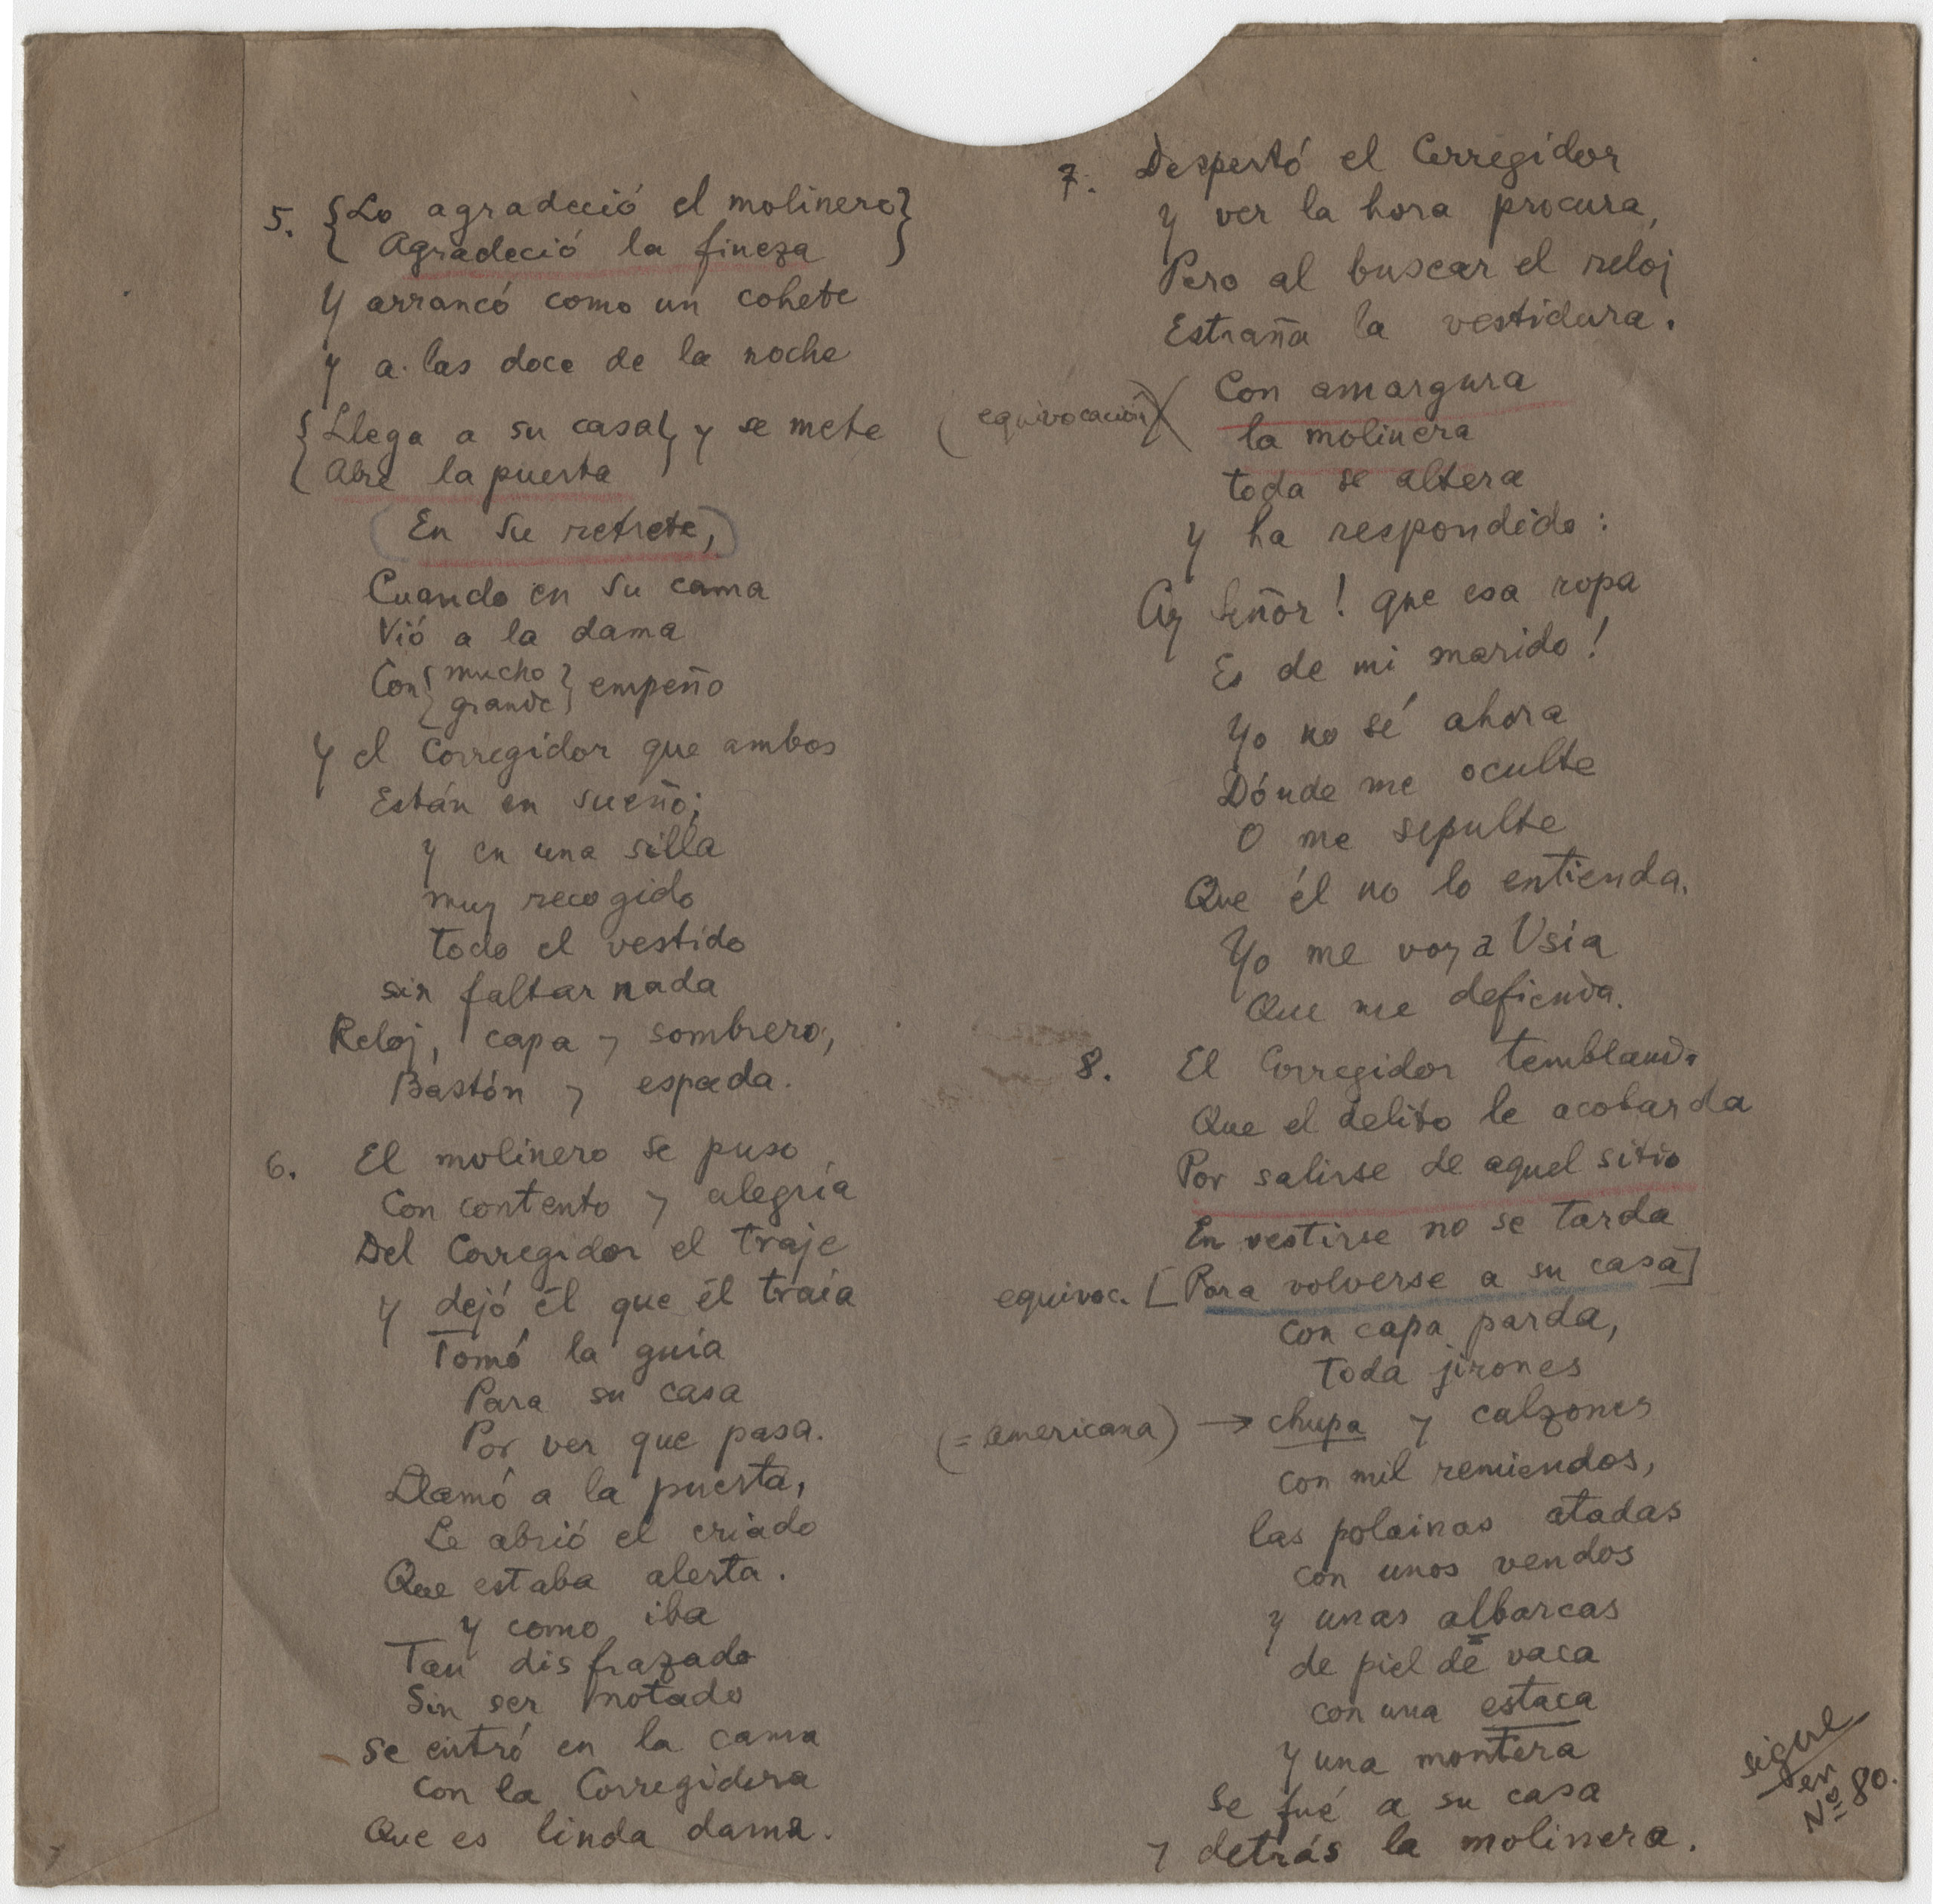 5. {Lo agradeció el molinero}
{Agradeció la fineza}
Y arrancó como un cohete
y a las doce de la noche
{Llega a su casa}, y se mete
{Abre la puerta}
(En su retrete,)
Cuando en su cama
Vió a la dama
Con {mucho grande} empeño
Y el Corregidor que ambos
Están en sueño;
y en una silla
muy recogido
todo el vestido
sin faltar nada
Reloj, capa y sombrero,
Bastón y espada.
6. El molinero se puso
Con contento y alegría
Del Corregidor el traje
y dejó él que él traía
Tomó la guía
Para su casa
Por ver que pasa.
Llamó a la puerta,
Le abrió el criado
Que estaba alerta.
Y como iba
Tan disfrazado
Sin ser notado
se entró en la cama
con la Corregidora
Que es linda dama.
7. Despertó el Corregidor
y ver la hora procura,
Pero al buscar el reloj
Estraña la vestidura.
(equivocación) Con amargura
la molinera
toda se altera
y ha respondido:
Ay Señor! que esa ropa
Es de mi marido!
Yo no sé ahora
Dónde me oculte
O me sepulte
Que él no lo entienda.
Yo me voy a Usia
Que me defienda.
8. El Corregidor temblando
Que el delito le acobarda
Por salirse de aquel sitio
En vestirse no se tarda
equivoc. [Para volverse a su casa]
con capa parda,
toda jirones
(= americana) → chupa y calzones
con mil remiendos,
las polainas atadas
con unos vendos
y unas albarcas
de piel de vaca
con una estaca
y una montera
se fué a su casa
y detrás la molinera.
sigue
en
Nº 80.